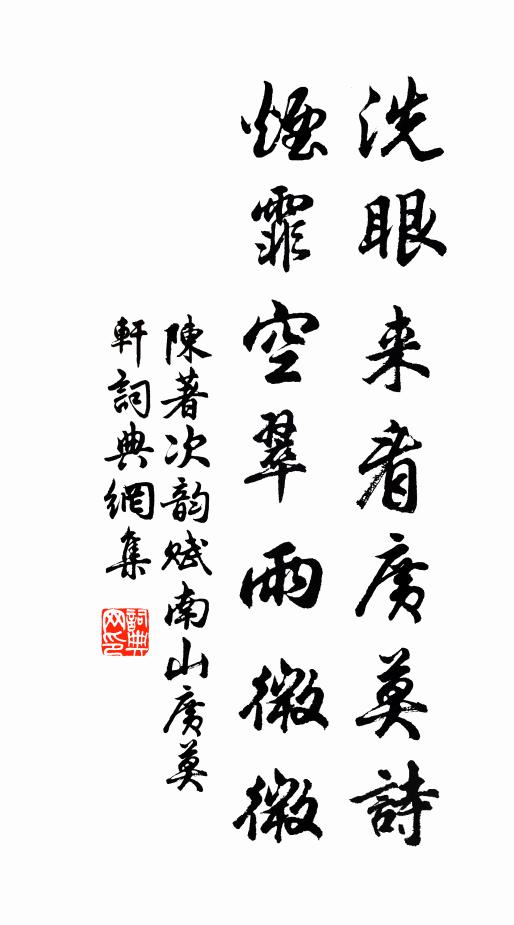 洗眼来看廣莫詩
煙霏空翠雨微微
陳著次韵赋南山廣莫
軒詞典網集
詞典網印